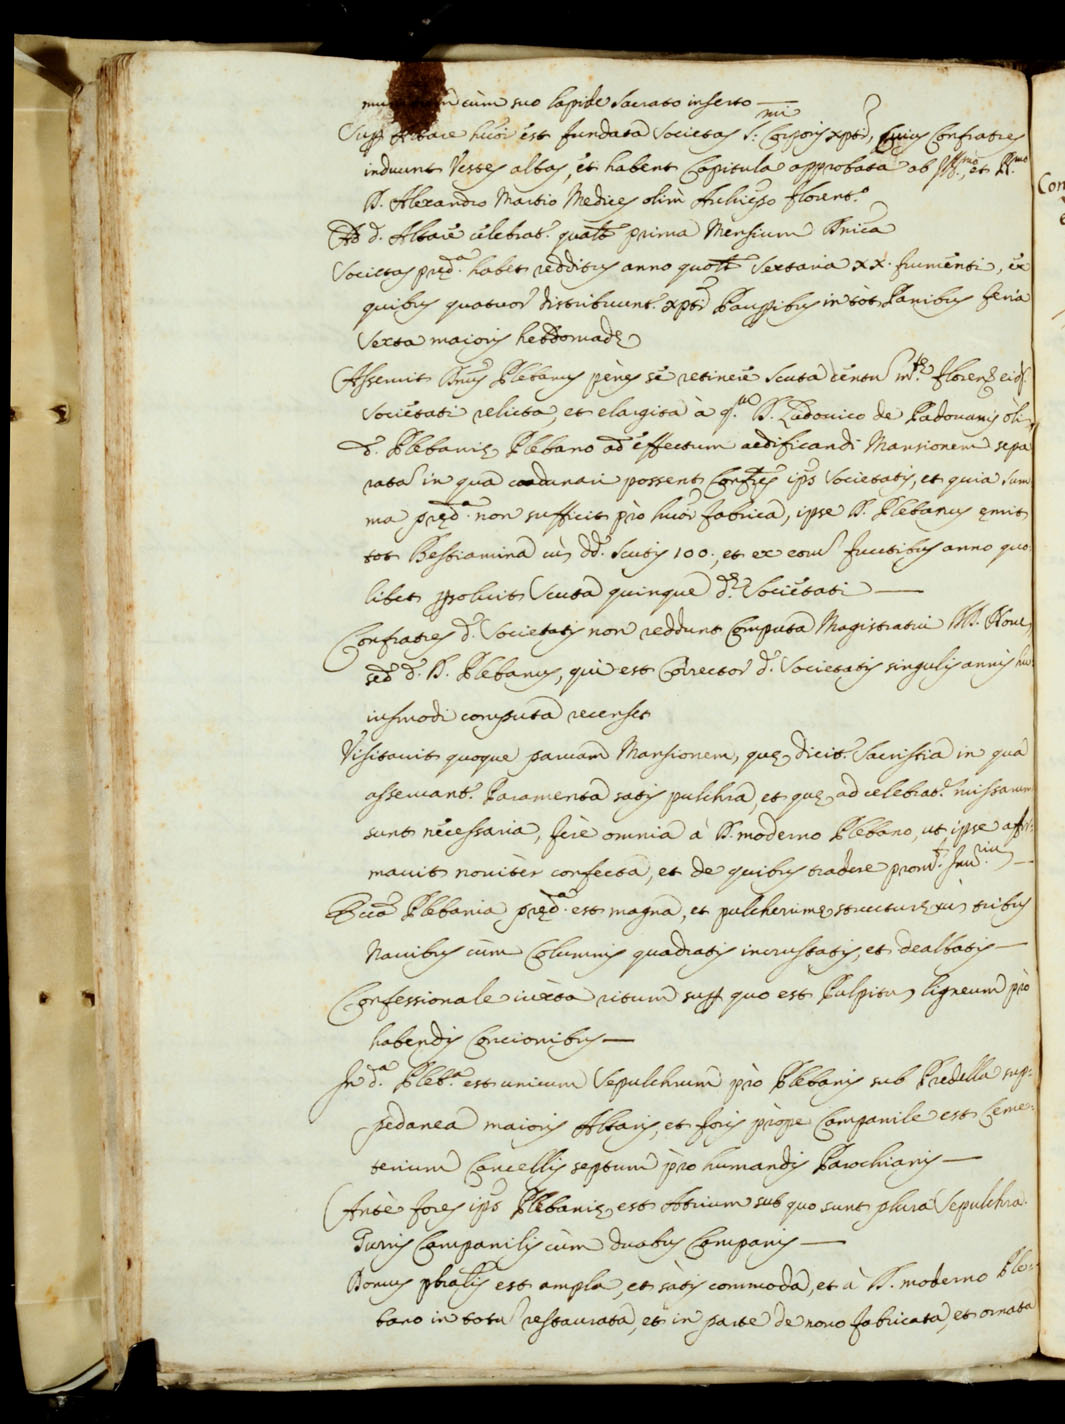 cum suo lapide Sacrato inserto —
Supr. Altare huiōi est fundata Societas S.mi Corporis xpti, cuius Confratres
induunt Vestes albas, et habent Capitula approbata ab Ill.mo, et R.mo
D. Alexandro Martio Medices olim Archiepō Florent.o
Ad d. Altare celebrat. qualt prima Mensium Dnica
Societas pred.a habet redditus anno quolt Sextaria XX. frumenti, ex
quibus quatuor distribuunt. xpti Pauperibus in tot Panibus feria
Sexta maioris hebdomadę
Asseruit Dnus Plebanus penes se retinere Scuta centu mtę. Florenę eidē
Societati relicta, et elargita à q.m D. Ludovico de Padovanis oli
d. Plebanię Plebano ad effectum aedificandi Mansionem sepa
rata in qua coadunari possent Confres ips Societatis, et quia Sum
ma pręd.a non sufficit pro huōi fabrica, ipse D. Plebanus emit
tot Bestiamina cu dd. Scutis 100., et ex eoru fructibus anno quo
libet persoluit Scuta quinque d.ę Societati —
Confratres d. Societatis non reddunt Computa Magistratui DD. Noue,
sed d. D. Plebanus, qui est Corrector d. Societatis singulis annis hu
iusmodi computa recenset
Visitauit quoque paruam Mansionem, quę dicit. Sacristia in qua
asseruant. Paramenta satis pulchra, et quę ad celebrat. missarum
sunt necessaria, ferè omnia à D. moderno Plebano, ut ipse affir-
mauit noviter confecta, et de quibus tradere promt. Inu.rium —
Eccā Plebania pręd.a est magna, et pulcherimę structurę cu tribus
Nauibus cum Columnis quadratis incrustatis, et dealbatis —
Confessionale iuxta ritum supr quo est Pulpitu ligneum pro
habendis Concionibus —
In d.a Pleb.a est unicum Sepulchrum pro Plebanis sub Predella sup-
pedanea maioris Altaris, et foris prope Campanile est Ceme-
terium Cancellis septum pro humandis Parochianis —
Ante fores ips Plebanię est Atrium sub quo sunt plura Sepulchra.
Turris Campanilis cum duabus Campanis —
Domus pbralis est ampla, et satis commoda, et à D. moderno Ple-
bano in totu restaurata, et in parte de nouo fabricata, et ornata